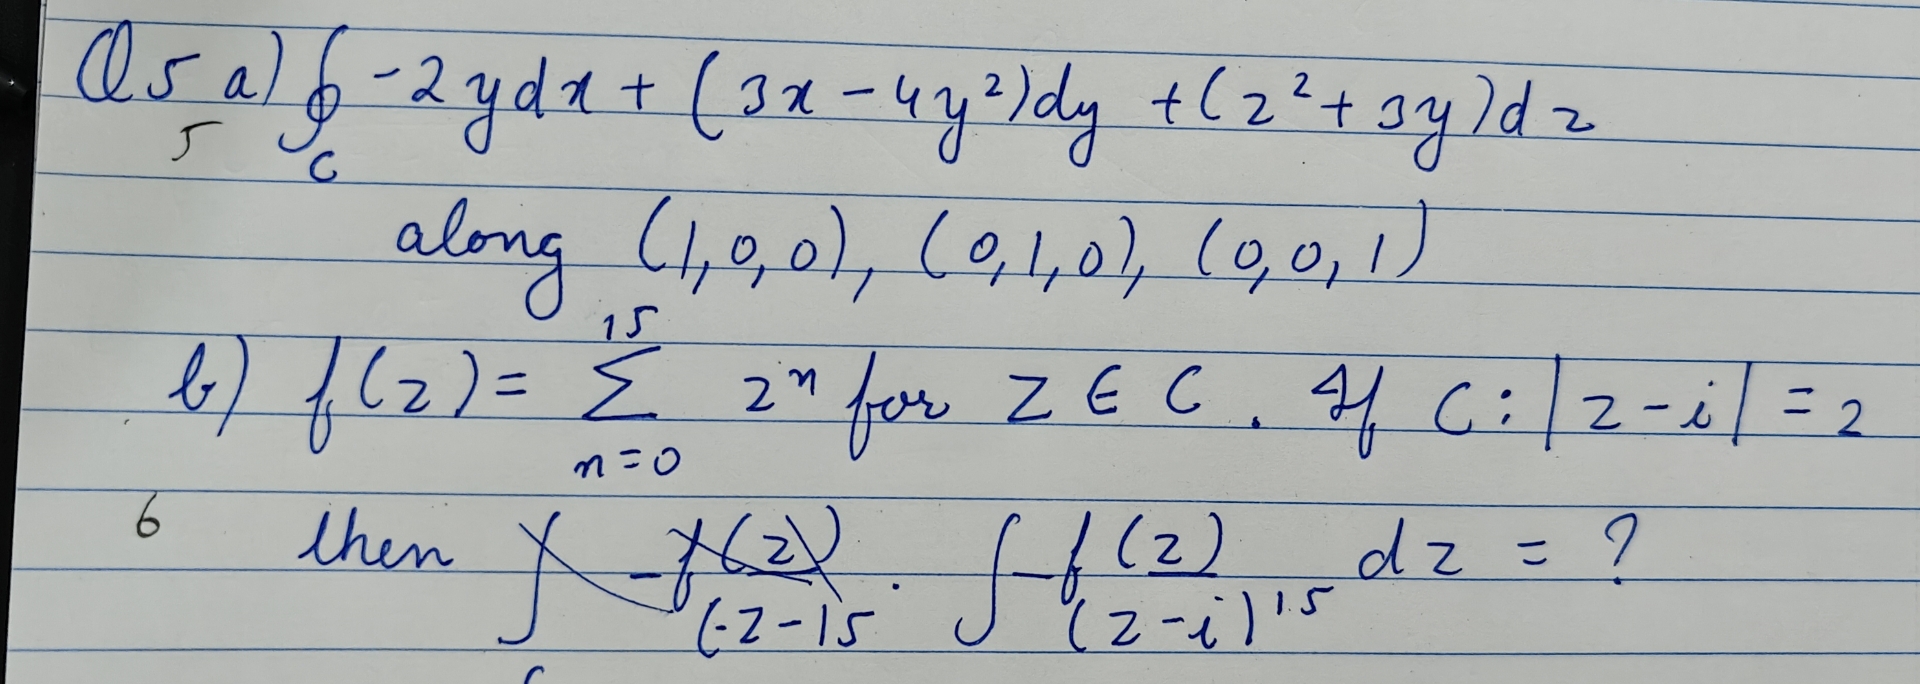 Q5 a) ∮ -2ydx + (3x - 4y²)dy + (z² + 3y)dz
5 C
along (1,0,0), (0,1,0), (0,0,1)
b) f(z) = Σ_{n=0}^{15} zⁿ for z ∈ C. If C: |z - i| = 2
6 then ∫ f(z)/(z-15 . ∫ f(z)/(z-i)¹⁵ dz = ?